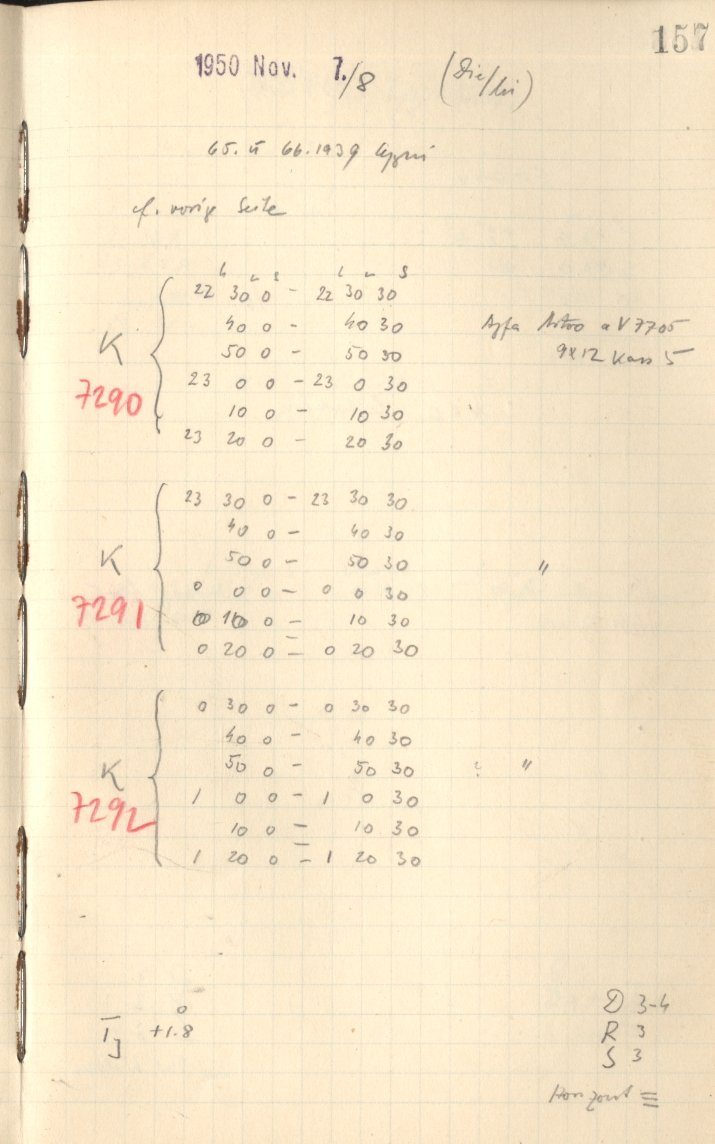 157
1950 Nov. 7./8 (Die/Mi)
65. u 66.1939 Cygni
cf. vorige Seite
h m s h m s
22 30 0 - 22 30 30
40 0 - 40 30
50 0 - 50 30
K 23 0 0 - 23 0 30
7290 10 0 - 10 30
23 20 0 - 20 30
Agfa Astro a V 7705
9x12 Kass 5
23 30 0 - 23 30 30
40 0 - 40 30
K 50 0 - 50 30 "
7291 0 0 0 - 0 0 30
0 10 0 - 10 30
0 20 0 - 0 20 30
0 30 0 - 0 30 30
40 0 - 40 30
K 50 0 - 50 30 "
7292 1 0 0 - 1 0 30
10 0 - 10 30
1 20 0 - 1 20 30
0
+1.8
D 3-4
R 3
S 3
Horizont ≡